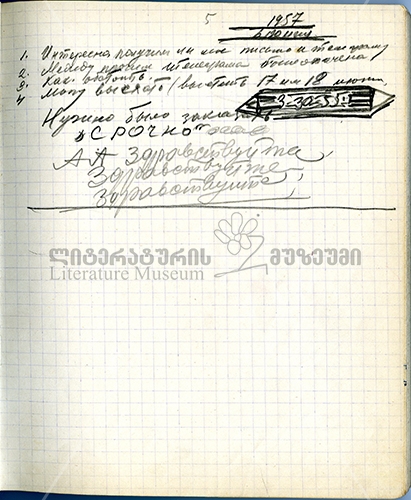 5
1957
1. Интересно получили ли мое письмо и телеграмму
2. Между прочим телеграмма была оплачена
3. Как работать.
4 Могу выехать/вылететь 17 или 18 июня
3-32-55
Нужно было заказать
"СРОЧНО"
АА Здравствуйте,
Здравствуйте
Здравствуйте,
ლიტერატურის მუზეუმი
Literature Museum